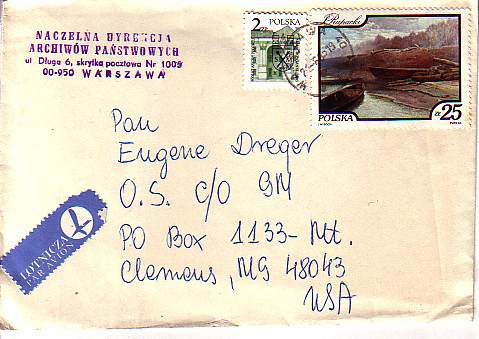 NACZELNA DYREKCJA
ARCHIWÓW PAŃSTWOWYCH
ul Długa 6, skrytka pocztowa Nr 1005
00-950 WARSZAWA
2 POLSKA
Rapacki
POLSKA zł 25
Pan
Eugene Dreger
O.S. c/o GM
PO Box 1133- Mt.
Clemens, MG 48043
USA
LOTNICZA
PAR AVION